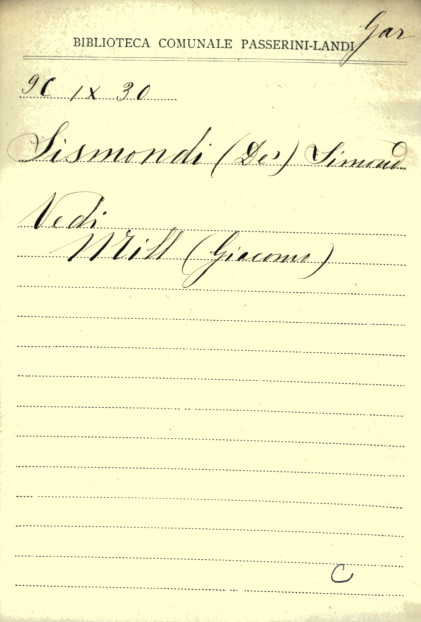 Gar
BIBLIOTECA COMUNALE PASSERINI-LANDI
9C IX 30
Sismondi (De') Simond
Vedi
Mill (Giacomo)
C